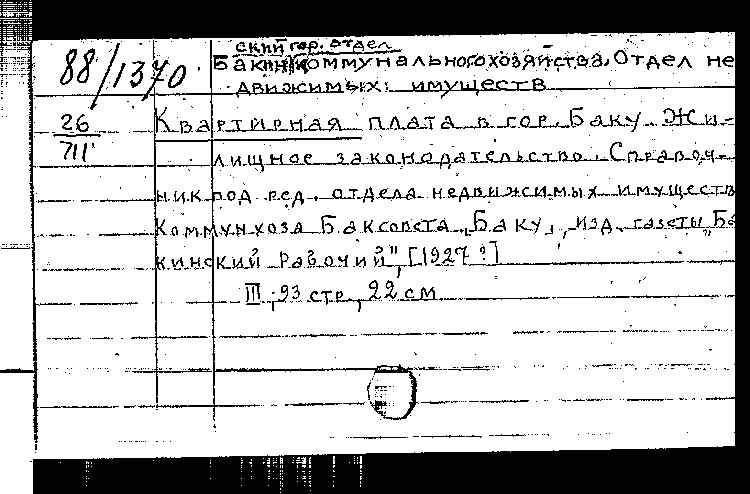 ский гор. отдел
88/1370 Бакин коммунального хозяйства, Отдел не
движимых имуществ
26 Квартирная плата в гор. Баку. Жи-
711 лищное законодательство. Справоч-
ник под ред. отдела недвижимых имуществ
Коммунхоза Баксовета, Баку, изд. газеты „Ба
кинский Рабочий", [1927?]
III, 93 стр, 22 см